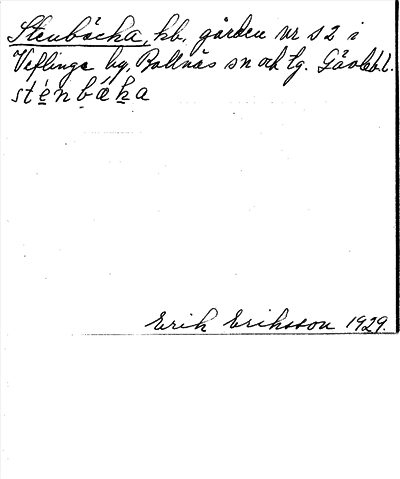 Stenbácka, hb, gården nr 12 i
Veflinge by, Bollnäs sn och tg. Gävleb.l.
sténbáka
Erik Eriksson 1929.